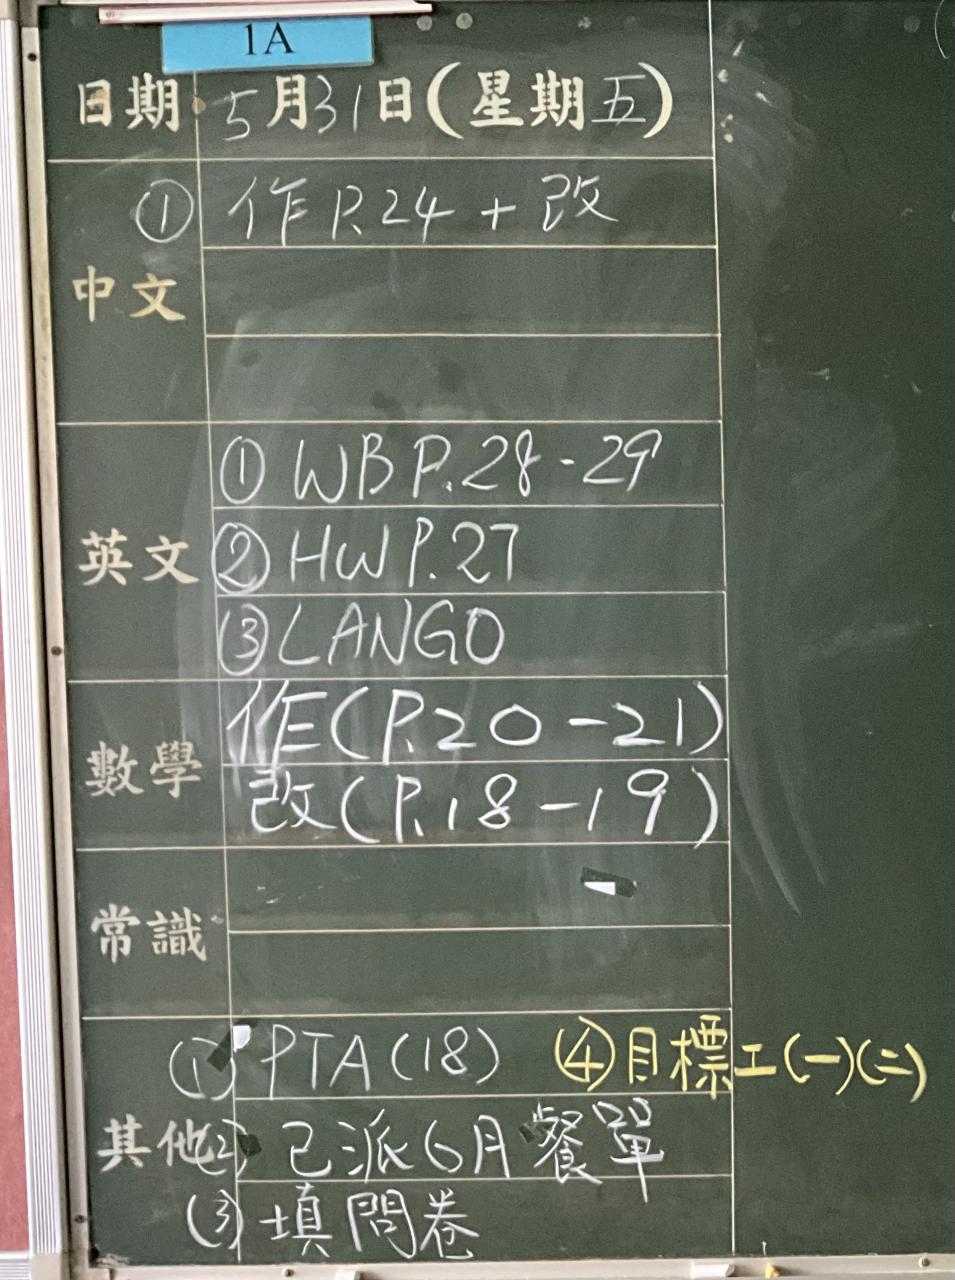 1A
日期 5月31日(星期五)
① 作 P.24 + 改
中文
① WB P.28-29
英文 ② HW P.27
③ LANGO
作(P.20-21)
數學
改(P.18-19)
常識
(1) PTA(18) ④目標工(一)(二)
其他 (2) 已派6月餐單
(3) 填問卷